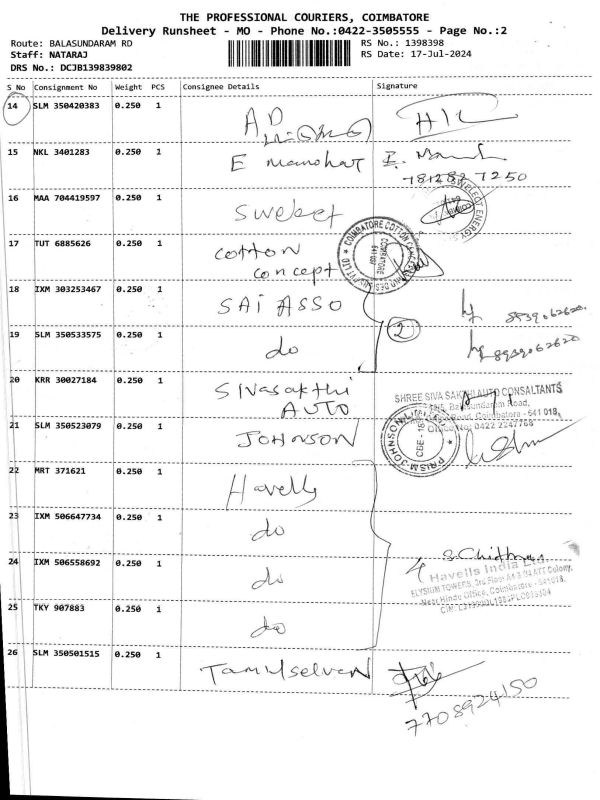 THE PROFESSIONAL COURIERS, COIMBATORE
Delivery Runsheet - MO - Phone No.:0422-3505555 - Page No.:2
Route: BALASUNDARAM RD
RS No.: 1398398
Staff: NATARAJ
RS Date: 17-Jul-2024
DRS No.: DCJB139839802
S No Consignment No Weight PCS Consignee Details Signature
14 SLM 350420383 0.250 1
AD
15 NKL 3401283 0.250 1 E manohar
16 MAA 704419597 0.250 1 Swelect
17 TUT 6885626 0.250 1 cotton
concept
COIMBATORE
18 IXM 303253467 0.250 1 SAI ASSO 8939062620
2
19 SLM 350533575 0.250 1 do 8939062620
20 KRR 30027184 0.250 1 SIVasakthi
AUTO
SHREE SIVA SAKTHI AUTO CONSULTANTS
Balasundaram Road,
Road, Coimbatore - 641 018.
Office No: 0422 2247768
21 SLM 350523079 0.250 1 JOHNSON
PRISM JOHNSON LIMITED
CBE - 18
22 MRT 371621 0.250 1 Havells
23 IXM 506647734 0.250 1 do
24 IXM 506558692 0.250 1 do
4
Havells India Ltd.
ELYSIUM TOWERS, 3rd Floor
Near Hindu Office, Coimbatore - 641018.
25 TKY 907883 0.250 1 do
26 SLM 350501515 0.250 1 Tamilselven
7708924150